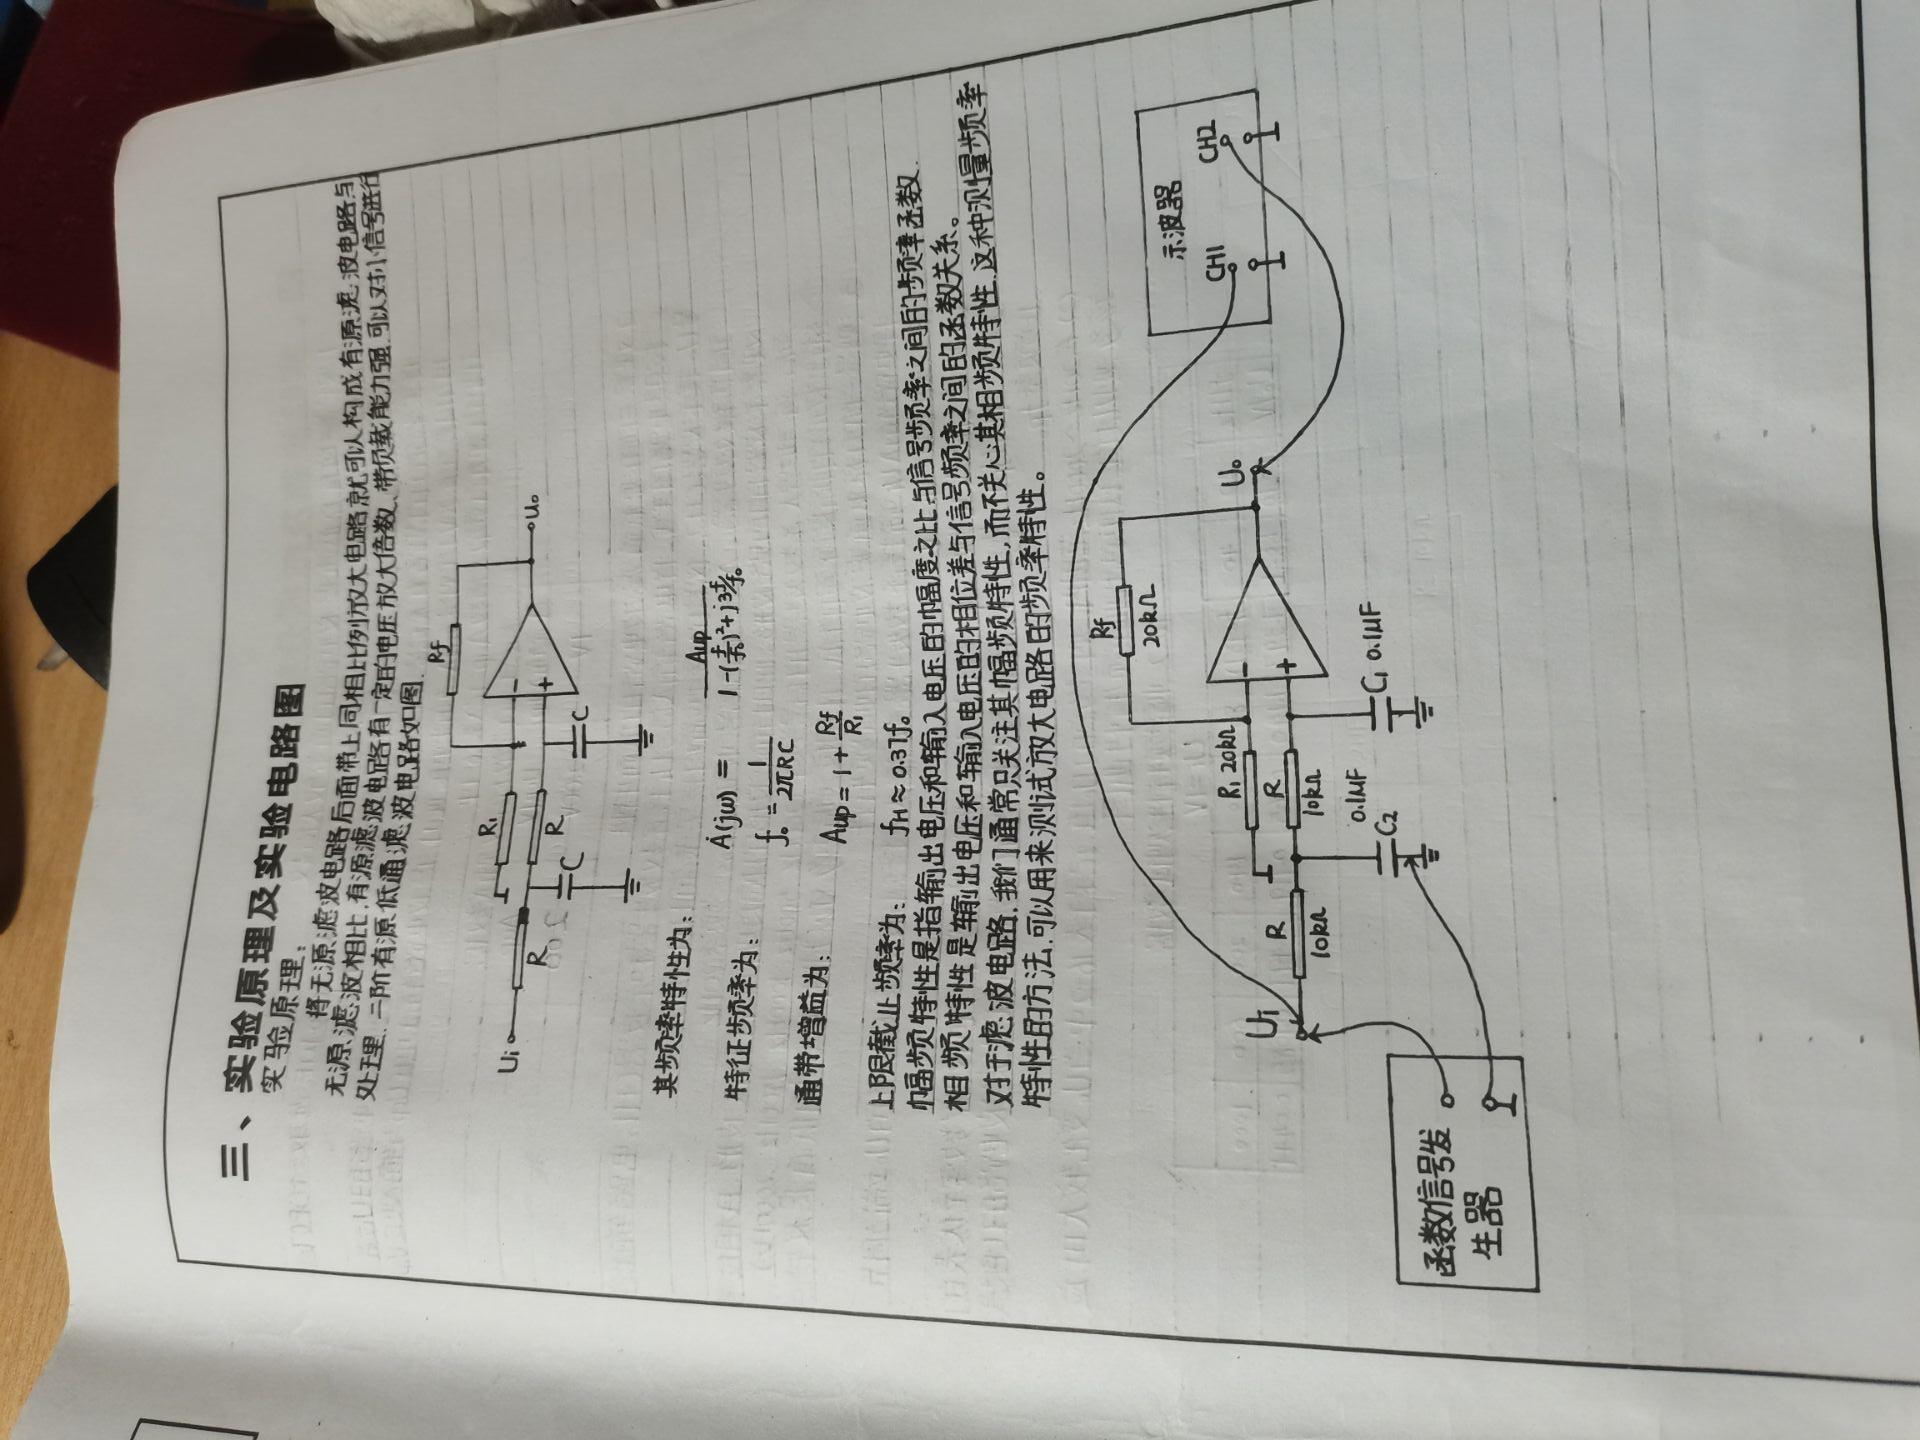 三、实验原理及实验电路图
实验原理：
将无源滤波电路后面带上同相比例放大电路就可以构成有源滤波电路与
无源滤波相比,有源滤波电路有一定的电压放大倍数、带负载能力强,可以对小信号进行
处理.二阶有源低通滤波电路如图.
Rf
R₁
Ui
R
R
C
C
-
+
Uo
其频率特性为：
Ȧ(jω) = Aup / (1-(f/f₀)²+j3f/f₀)
特征频率为：
f₀ = 1/(2πRC)
通带增益为：
Aup = 1 + Rf/R₁
上限截止频率为： fH≈0.37f₀
幅频特性是指输出电压和输入电压的幅度之比与信号频率之间的频率函数.
相频特性是输出电压和输入电压的相位差与信号频率之间的函数关系。
对于滤波电路.我们通常只关注其幅频特性,而不关心其相频特性.这种测量频率
特性的方法.可以用来测试放大电路的频率特性。
Rf
20kΩ
示波器
CH1
CH2
R₁ 20kΩ
-
Uo
Ui
R
10kΩ
R
10kΩ
+
0.1μF
C2
C₁ 0.1μF
函数信号发
生器